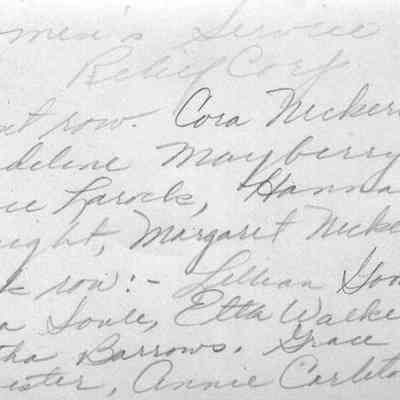 omen's Service
Relief Corp
nt row. Cora Nickers
deline Mayberry
ce Larock, Hanna
ight, Margaret Nicke
k row:- Lillian Goo
a Soule, Etta Walke
tha Barrows, Grace
ister, Annie Carleto